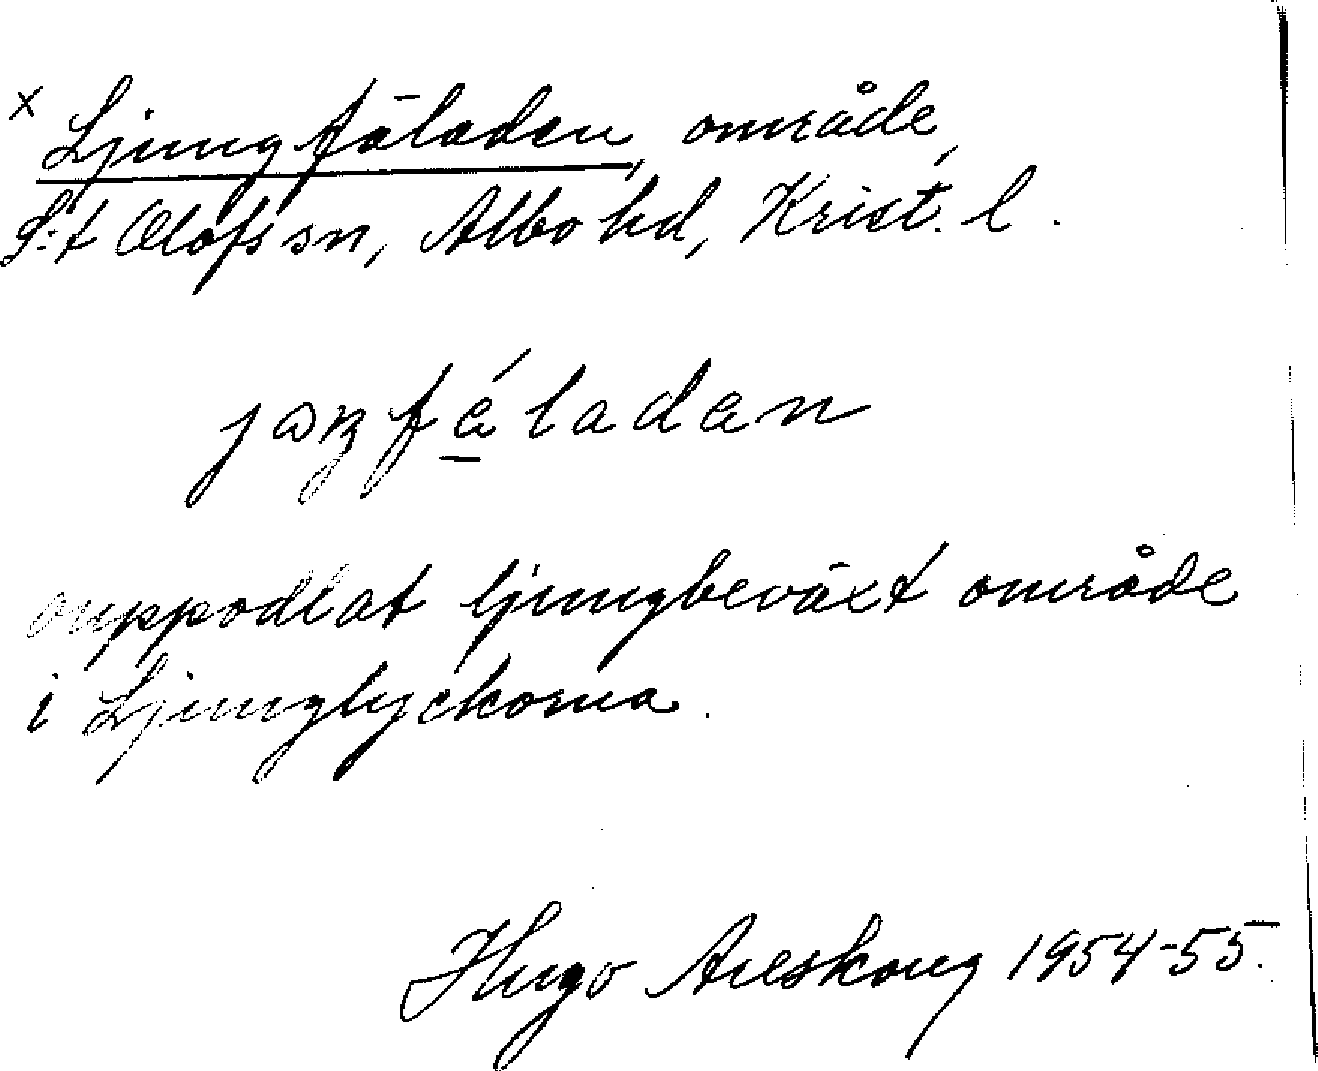 x Ljungfäladen, område,
S:t Olofs sn, Albo hd, Krist. l.
ouppodlat ljungbeväxt område
i Ljunglyckorna.
Hugo Areskoug 1954-55.